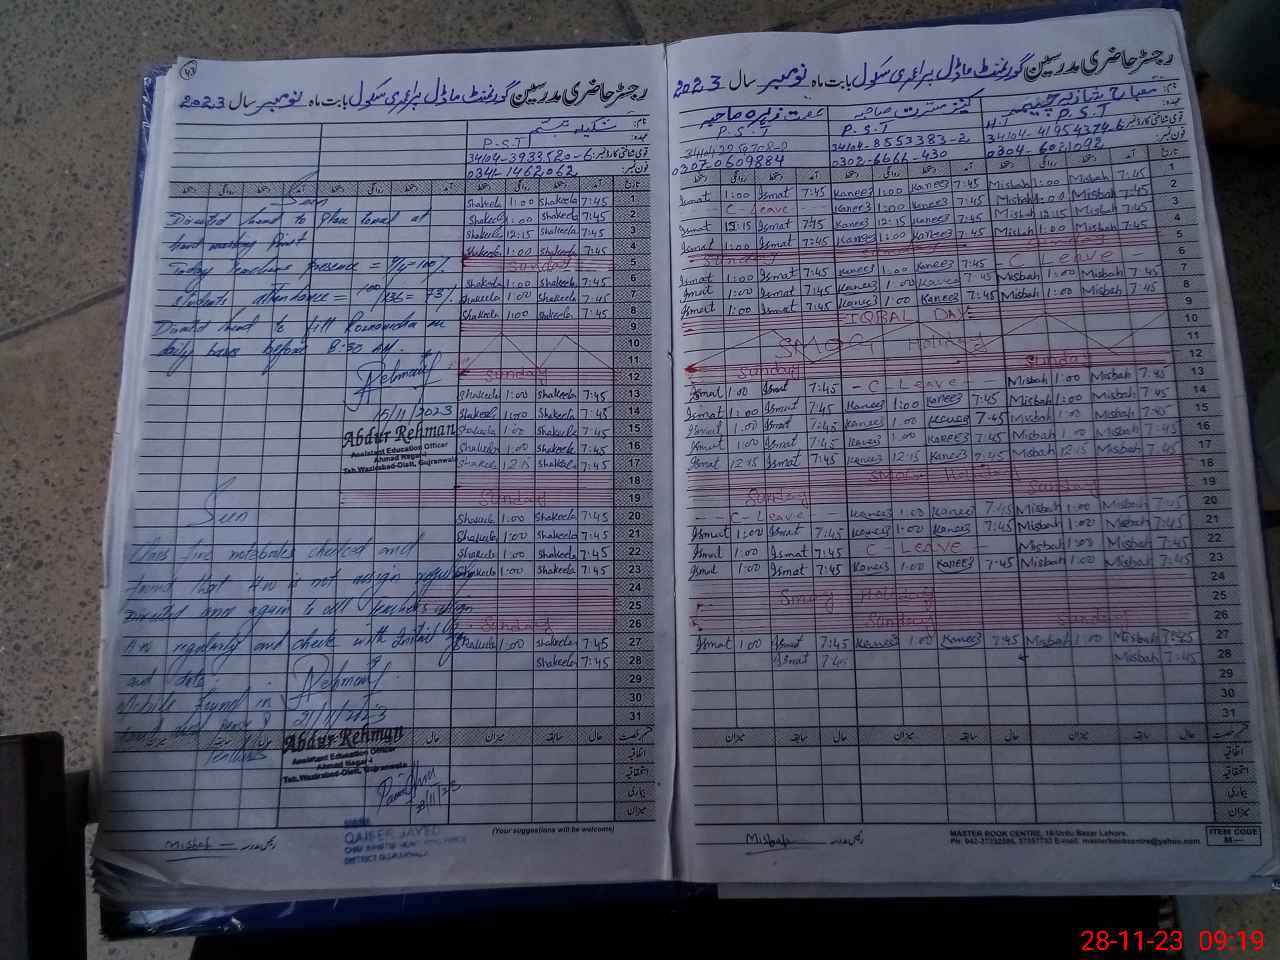 رجسٹر حاضری مدرسین گورنمنٹ ماڈل پرائمری سکول بابت ماہ نومبر سال 2023
43
نام: شکیلہ تبسم
عہدہ: P.S.T
قومی شناختی کارڈ نمبر: 34104-3933520-6
فون نمبر: 0341-1462062
تاریخ آمد دستخط روانگی دستخط
1 7:45 Shakeela 1:00 Shakeela
2 7:45 Shakeela 1:00 Shakeela
3 7:45 Shakeela 12:15 Shakeela
4 7:45 Shakeela 1:00 Shakeela
5 Sunday
6 7:45 Shakeela 1:00 Shakeela
7 7:45 Shakeela 1:00 Shakeela
8 7:45 Shakeela 1:00 Shakeela
9
10
11
12 Sunday
13 7:45 Shakeela 1:00 Shakeela
14 7:45 Shakeela 1:00 Shakeela
15 7:45 Shakeela 1:00 Shakeela
16 7:45 Shakeela 1:00 Shakeela
17 7:45 Shakeela 12:15 Shakeela
18
19 Sunday
20 7:45 Shakeela 1:00 Shakeela
21 7:45 Shakeela 1:00 Shakeela
22 7:45 Shakeela 1:00 Shakeela
23 7:45 Shakeela 1:00 Shakeela
24
25
26 Sunday
27 7:45 Shakeela 1:00 Shakeela
28 7:45 Shakeela
29
30
31
Seen
Directed hand to place
hand washing Point
Today Teachers presence = 4/4=100%
Students attendance = 100/136= 73%
Directed head to fill Roznamcha on
daily basis before 8:30 AM.
Rehman
15/11/2023
Abdur Rehman
Assistant Education Officer
Ahmad Nagar-I
Teh.Wazirabad-Distt, Gujranwala
Seen
Class five notebooks checked and
found that H.W is not assign regularly
Directed once again to all Teachers assign
H.W regularly and check with initial
and date.
Rehman
21/11/2023
Abdur Rehman
Assistant Education Officer
Ahmad Nagar-I
Teh.Wazirabad-Distt, Gujranwala
28/11/23
QAISER JAVED
میزان سابقہ حال
اتفاقیہ
استحقاقیہ
بیماری
میزان
(Your suggestions will be welcome)
Misbah
رجسٹر حاضری مدرسین گورنمنٹ ماڈل پرائمری سکول بابت ماہ نومبر سال 2023
P.S.T P.S.T H.T P.S.T
34104-8553383-2 34104-41954374-6
0307-0609884 0302-6666-430 0304-6021092
1 7:45 Misbah 1:00 Misbah 7:45 Kaneez 1:00 Kaneez 7:45 Ismat 1:00 Ismat
2 7:45 Misbah 1:00 Misbah 7:45 Kaneez 1:00 Kaneez C-Leave
3 7:45 Misbah 12:15 Misbah 7:45 Kaneez 12:15 Kaneez 7:45 Ismat 12:15 Ismat
4 7:45 Misbah 1:00 Misbah 7:45 Kaneez 1:00 Kaneez 7:45 Ismat 1:00 Ismat
5 Sunday Sunday Sunday
6 C Leave 7:45 Kaneez 1:00 Kaneez 7:45 Ismat 1:00 Ismat
7 7:45 Misbah 1:00 Misbah 7:45 Kaneez 1:00 Kaneez 7:45 Ismat 1:00 Ismat
8 7:45 Misbah 1:00 Misbah 7:45 Kaneez 1:00 Kaneez 7:45 Ismat 1:00 Ismat
9 IQBAL DAY
10
11 SMOG Holiday
12 Sunday Sunday
13 7:45 Misbah 1:00 Misbah C-Leave 7:45 Ismat 1:00 Ismat
14 7:45 Misbah 1:00 Misbah 7:45 Kaneez 1:00 Kaneez 7:45 Ismat 1:00 Ismat
15 7:45 Misbah 1:00 Misbah 7:45 Kaneez 1:00 Kaneez 7:45 Ismat 1:00 Ismat
16 7:45 Misbah 1:00 Misbah 7:45 Kaneez 1:00 Kaneez 7:45 Ismat 1:00 Ismat
17 7:45 Misbah 12:15 Misbah 7:45 Kaneez 12:15 Kaneez 7:45 Ismat 12:15 Ismat
18 Smog Holiday
19 Sunday Sunday
20 7:45 Misbah 1:00 Misbah 7:45 Kaneez 1:00 Kaneez C-Leave
21 7:45 Misbah 1:00 Misbah 7:45 Kaneez 1:00 Kaneez 7:45 Ismat 1:00 Ismat
22 7:45 Misbah 1:00 Misbah C-Leave 7:45 Ismat 1:00 Ismat
23 7:45 Misbah 1:00 Misbah 7:45 Kaneez 1:00 Kaneez 7:45 Ismat 1:00 Ismat
24
25 Smog Holiday
26 Sunday Sunday
27 7:45 Misbah 1:00 Misbah 7:45 Kaneez 1:00 Kaneez 7:45 Ismat 1:00 Ismat
28 7:45 Misbah 7:45 Ismat
29
30
31
میزان سابقہ حال
اتفاقیہ
استحقاقیہ
بیماری
میزان
Misbah
MASTER BOOK CENTRE, 16-Urdu Bazar Lahore.
ITEM CODE
28-11-23 09:19